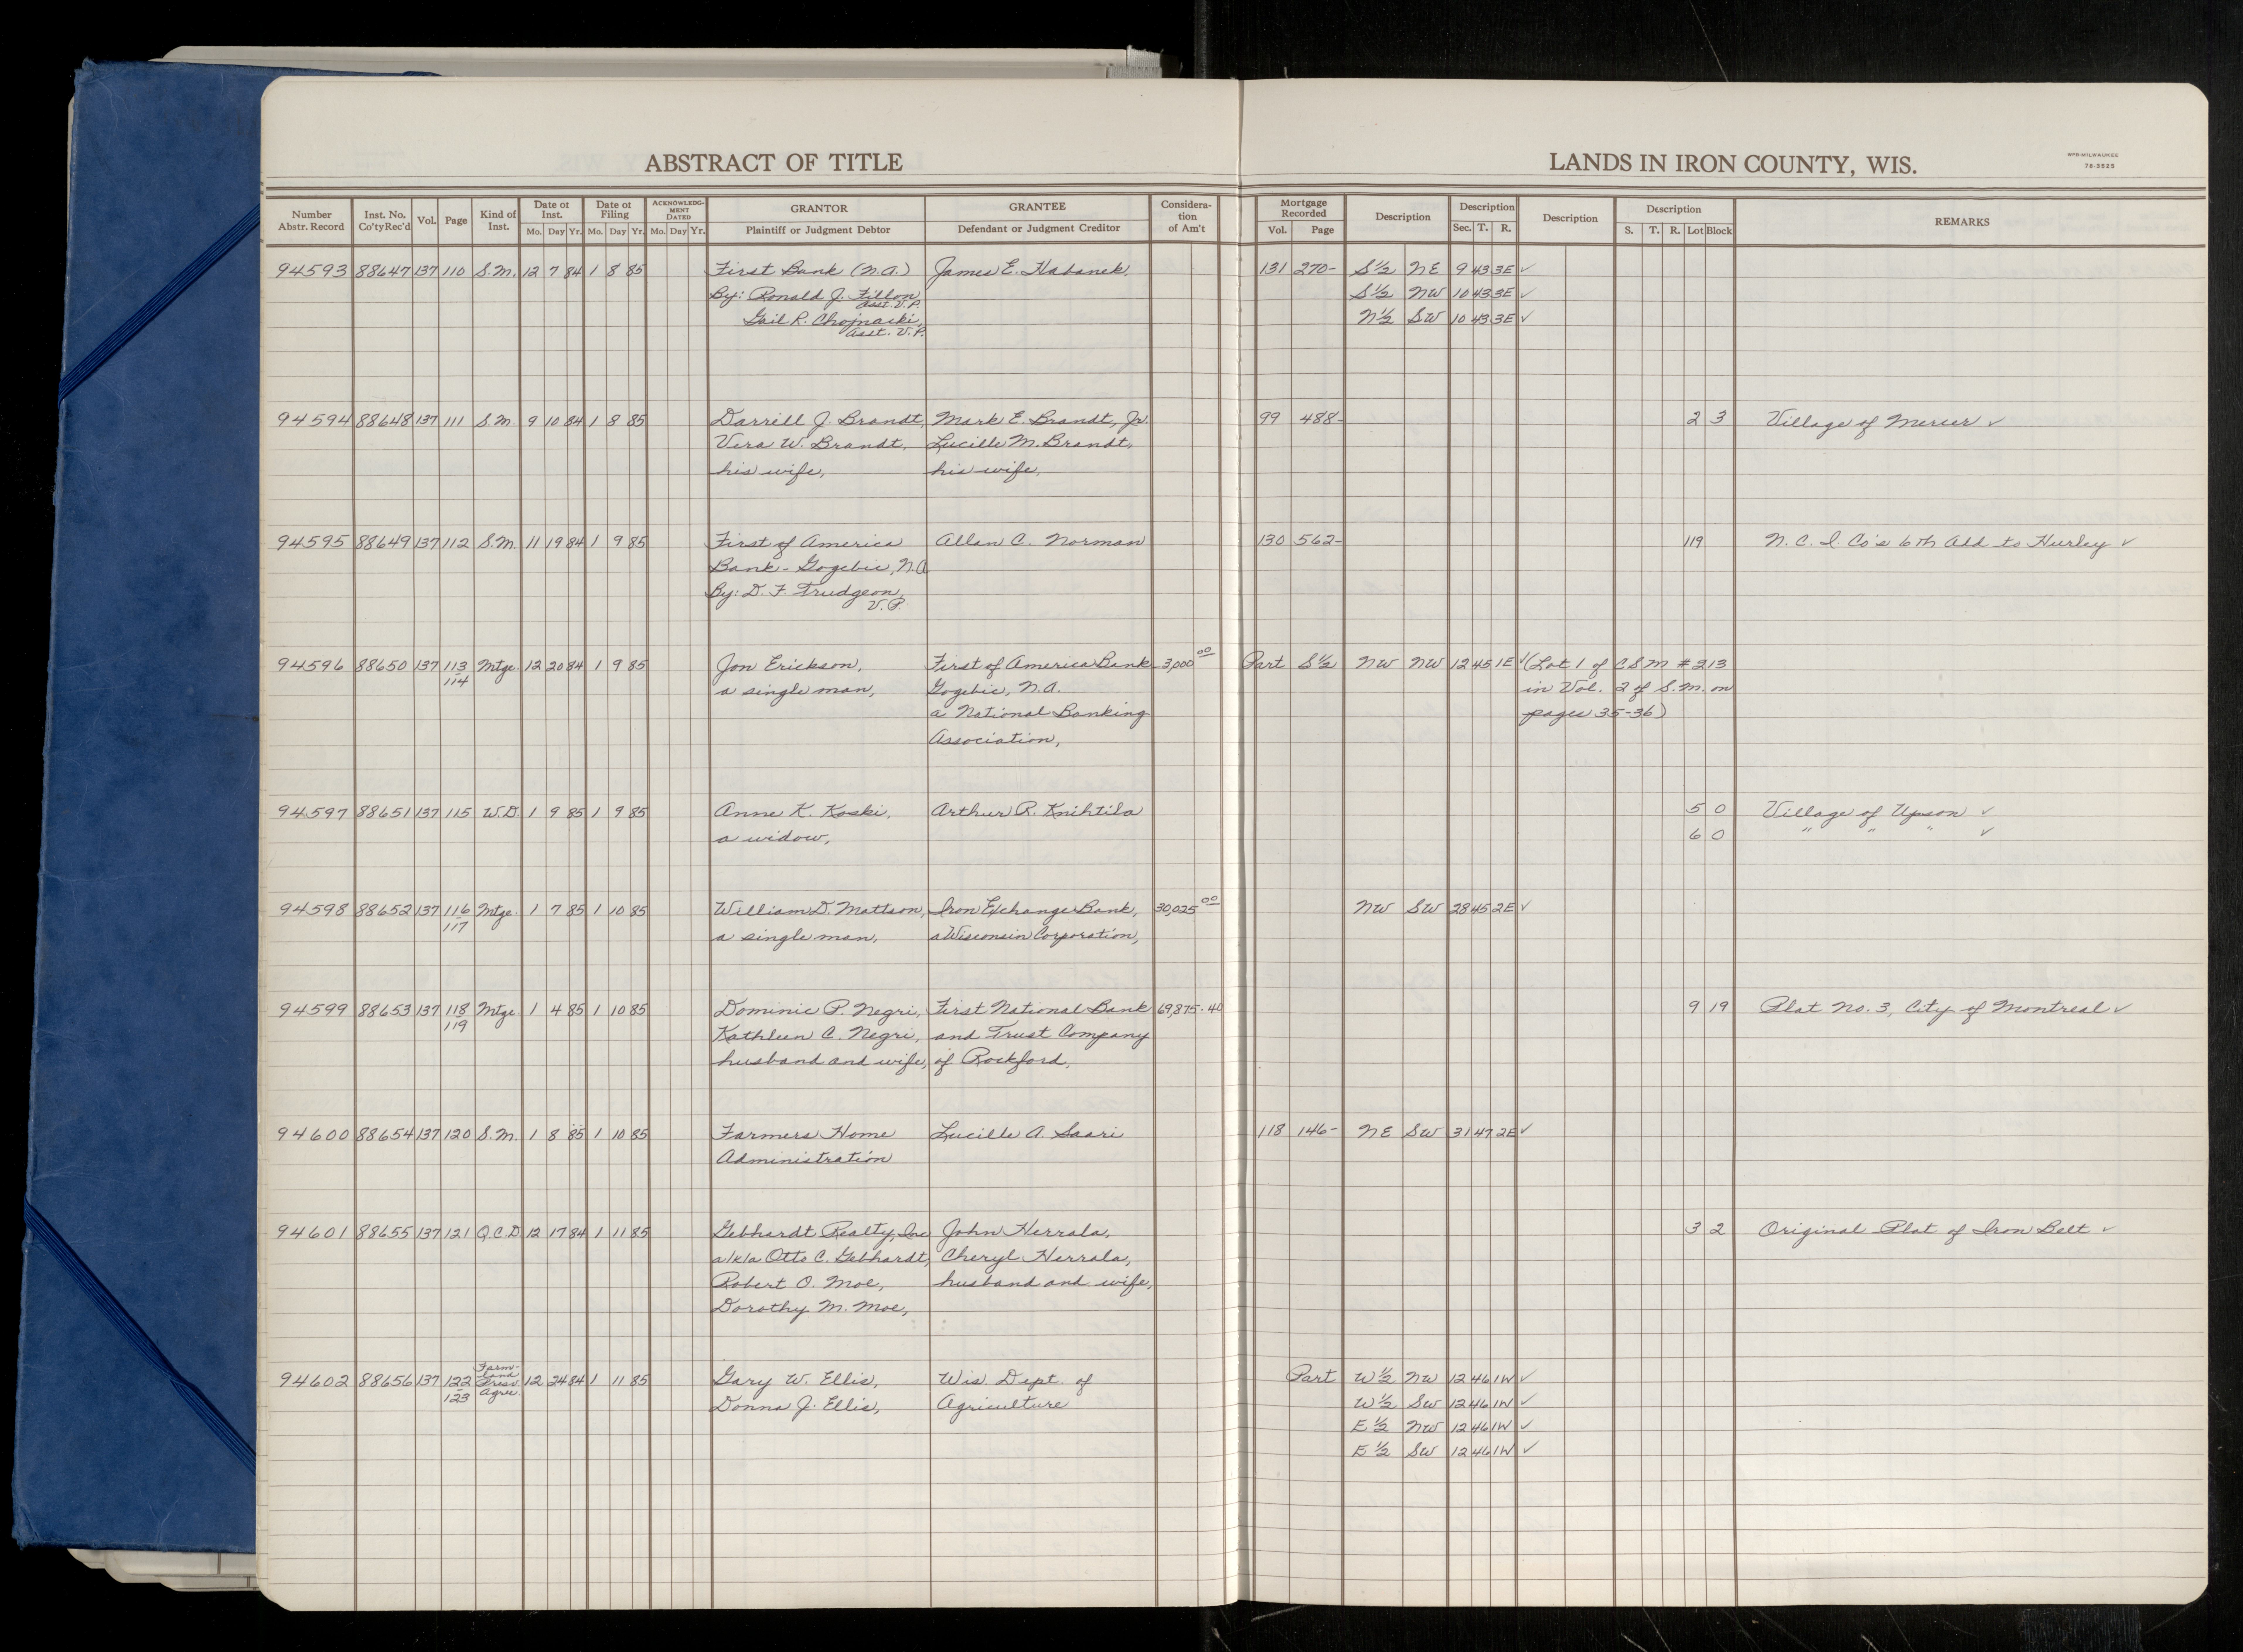 ABSTRACT OF TITLE
LANDS IN IRON COUNTY, WIS.
WPB-MILWAUKEE
78-3525
Number Abstr. Record | Inst. No. Co'ty Rec'd | Vol. | Page | Kind of Inst. | Date of Inst. Mo. Day Yr. | Date of Filing Mo. Day Yr. | ACKNOWLEDG-MENT DATED Mo. Day Yr. | GRANTOR Plaintiff or Judgment Debtor | GRANTEE Defendant or Judgment Creditor | Considera-tion of Am't | Mortgage Recorded Vol. Page | Description | Description Sec. T. R. | Description | Description S. T. R. Lot Block | REMARKS
94593 88647 137 110 S.M. 12 7 84 1 8 85 First Bank (N.A.) James E. Habanek, 131 270- S½ NE 9 43 3E ✓
By: Ronald J. Fillon, S½ NW 10 43 3E ✓
Asst. V.P.
Gail R. Chojnacki, N½ SW 10 43 3E ✓
Asst. V.P.
94594 88648 137 111 S.M. 9 10 84 1 8 85 Darrell J. Brandt, Mark E. Brandt, Jr. 99 488- 2 3 Village of Mercer ✓
Vera W. Brandt, Lucille M. Brandt,
his wife, his wife,
94595 88649 137 112 S.M. 11 19 84 1 9 85 First of America Allan C. Norman 130 562- 119 N.C.I. Co's 6th Add to Hurley ✓
Bank - Gogebic, N.A.
By: D. F. Trudgeon,
V.P.
94596 88650 137 113 Mtge. 12 20 84 1 9 85 Jon Erickson, First of America Bank- 3,000 00 Part S½ NW NW 12 45 1E ✓ (Lot 1 of CSM #213
114 a single man, Gogebic, N.A. in Vol. 2 of S.M. on
a National Banking pages 35-36)
Association,
94597 88651 137 115 W.D. 1 9 85 1 9 85 Anne K. Koski, Arthur R. Knihtila 5 0 Village of Upson ✓
a widow, 6 0 " " " ✓
94598 88652 137 116 Mtge. 1 7 85 1 10 85 William D. Mattson, Iron Exchange Bank, 30,025 00 NW SW 28 45 2E ✓
117 a single man, a Wisconsin Corporation,
94599 88653 137 118 Mtge. 1 4 85 1 10 85 Dominic P. Negri, First National Bank 69,875.40 9 19 Plat No. 3, City of Montreal ✓
119 Kathleen C. Negri, and Trust Company
husband and wife, of Rockford,
94600 88654 137 120 S.M. 1 8 85 1 10 85 Farmers Home Lucille A. Saari 118 146- NE SW 31 47 2E ✓
Administration
94601 88655 137 121 Q.C.D. 12 17 84 1 11 85 Gebhardt Realty, Inc John Herrala, 3 2 Original Plat of Iron Belt ✓
a/k/a Otto C. Gebhardt, Cheryl Herrala,
Robert O. Moe, husband and wife,
Dorothy M. Moe,
94602 88656 137 122 Farm-land Presv. Agree. 12 24 84 1 11 85 Gary W. Ellis, Wis. Dept. of Part W½ NW 12 46 1W ✓
123 Donna J. Ellis, Agriculture W½ SW 12 46 1W ✓
E½ NW 12 46 1W ✓
E½ SW 12 46 1W ✓